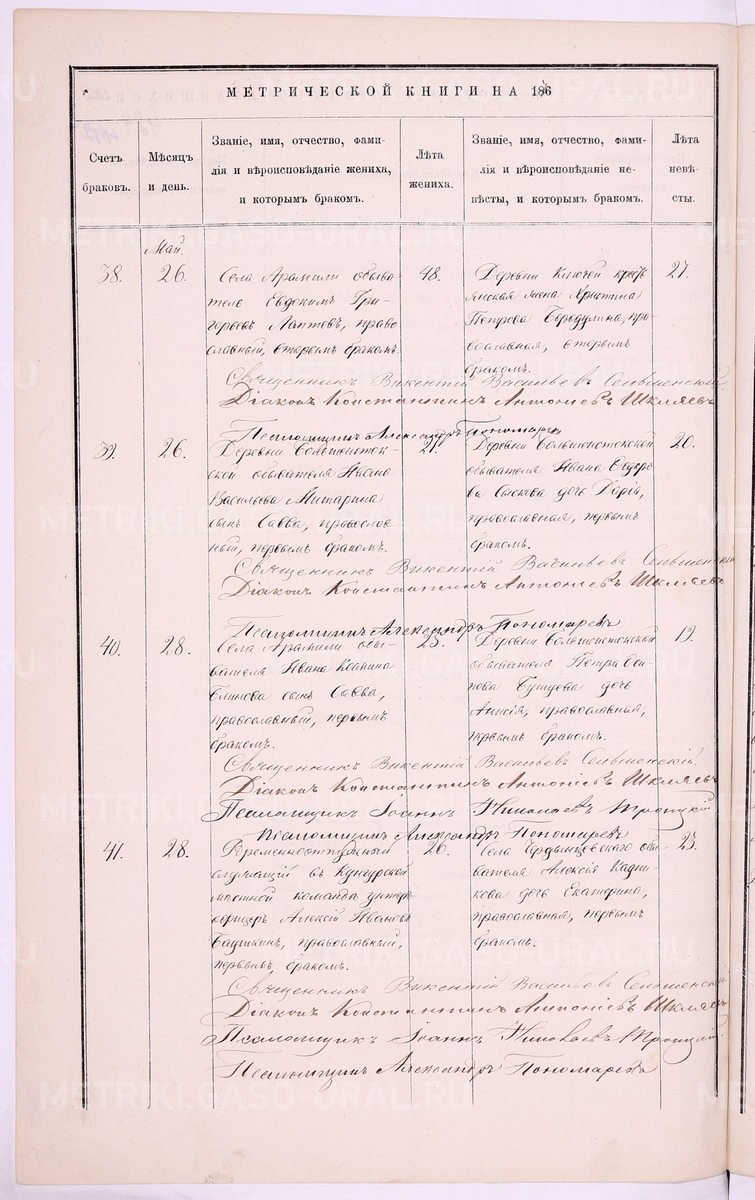 МЕТРИЧЕСКОЙ КНИГИ НА 186
Счетъ
браковъ.
Мѣсяцъ
и день.
Званіе, имя, отчество, фами-
лія и вѣроисповѣданіе жениха,
и которымъ бракомъ.
Лѣта
жениха.
Званіе, имя, отчество, фами-
лія и вѣроисповѣданіе не-
вѣсты, и которымъ бракомъ.
Лѣта
невѣ-
сты.
Май.
38.
26.
Села Арамили обыва-
тель Евдокимъ Гри-
горьевъ Лаптевъ, право
славный, вторымъ бракомъ.
48.
Деревни Ключей крест
янская жена Христина
Петрова Бородулина, пра-
вославная, вторымъ
бракомъ.
27.
Священникъ Викентій Васильевъ
Діаконъ Константинъ Антоніевъ Шкляевъ
Псаломщикъ Александръ Пономаревъ
39.
26.
Деревни Большеисток-
ской обывателя
Васильева
сынъ Савва, православ
ный, первымъ бракомъ.
21.
Деревни Большеистокской
обывателя Ивана Ѳедоро
ва дочь Дарія,
православная, первымъ
бракомъ.
20.
Священникъ Викентій Васильевъ
Діаконъ Константинъ Антоніевъ Шкляевъ
Псаломщикъ Александръ Пономаревъ
40.
28.
Села Арамили обы-
вателя Ивана
Блинова сынъ Савва,
православный, первымъ
бракомъ.
23.
Деревни Большеистокской
обывателя Петра Оси
пова дочь
Анисія, православная,
первымъ бракомъ.
19.
Священникъ Викентій Васильевъ
Діаконъ Константинъ Антоніевъ Шкляевъ
Псаломщикъ Іоаннъ Николаевъ Троицкій
Псаломщикъ Александръ Пономаревъ
41.
28.
Временноотпускный
служащій въ Кунгурской
мѣстной командѣ унтеръ
офицеръ Алексій Ивановъ
православный,
первымъ бракомъ.
26.
Села обы-
вателя Алексія Кадни
кова дочь Екатерина,
православная, первымъ
бракомъ.
23.
Священникъ Викентій Васильевъ
Діаконъ Константинъ Антоніевъ Шкляевъ
Псаломщикъ Іоаннъ Николаевъ Троицкій
Псаломщикъ Александръ Пономаревъ
METRIKI.GASO-URAL.RU